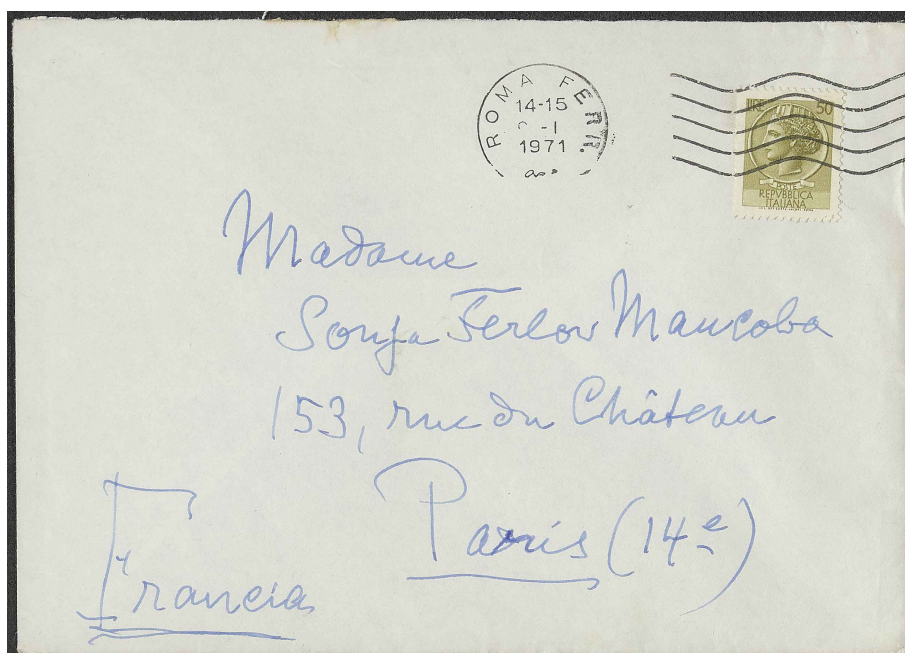 ROMA FERR.
14-15
-I
1971
LIRE 50
POSTE
REPVBBLICA
ITALIANA
Madame
Sonja Ferlov Mancoba
153, rue du Château
Paris (14e)
Francia